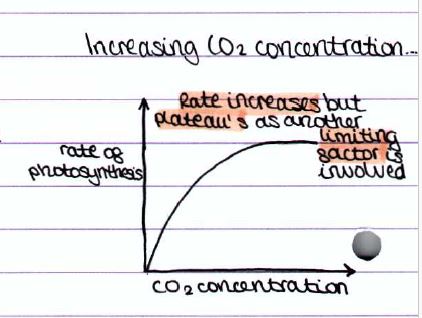 Increasing CO2 concentration...
Rate increases but
plateau's as another
limiting
factor is
involved
rate of
photosynthesis
CO2 concentration